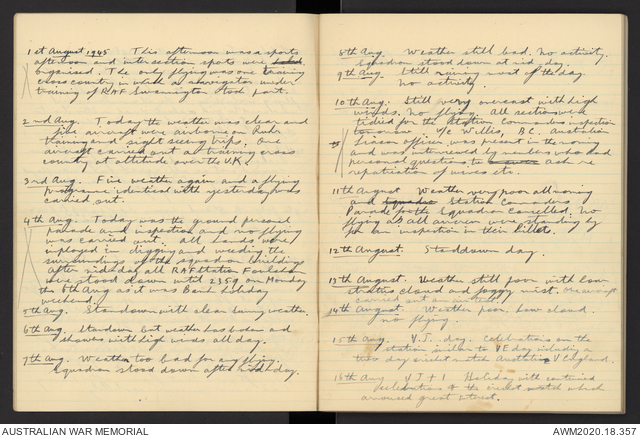 1st August 1945 This afternoon was a sports
afternoon and intersection spots were
organised. The only flying was one training
cross country in which a navigator under
training of RAF Swannington took part.
2nd Aug. Today the weather was clear and
five aircraft were airborne on Ruhr
training and sight seeing trips. One
aircraft carried out a training cross
country at altitude over the U.K.
3rd Aug. Fine weather again and a flying
programme identical with yesterday was
carried out.
4th Aug. Today was the ground personel
parade and inspection and no flying
was carried out. All hands were
imployed in digging and weeding the
surroundings of the squadron buildings
after midday all RAF Station Foulsham
were stood down until 2359 on Monday
the 6th Aug as it was Bank holiday
weekend.
5th Aug. Standdown with clear sunny weather.
6th Aug. Standown but weather has broken and
showers with high winds all day.
7th Aug. Weather too bad for any flying.
Squadron stood down after midday.
8th Aug. Weather still bad. No activity.
Squadron stood down at mid day.
9th Aug. Still raining most of the day.
No activity.
10th Aug. Still very overcast with high
winds, no flying. All sections were
tidied for the Station Commanders inspection
tomorrow. W/C Willis, B.C. Australian
Liason officer was present in the morning
and was interviewed by members who had
personal questions to ask re
repatriation of wives etc.
11th August Weather very poor all morning
and Station Comanders
Parade for the Squadron cancelled. No
flying as all aircrew were standing by
for an inspection in their billets.
12th August. Standdown day.
13th August. Weather still poor with low
stratus cloud and foggy mist.
carried out an
14th August. Weather poor, low cloud.
no flying.
15th Aug. V.J. day. Celebrations on the
station similar to VE day including a
two day cricket match Australia V England.
16th Aug VJ + 1 Holiday with continued
celebrations & the cricket match which
aroused great interest.
AUSTRALIAN WAR MEMORIAL
AWM2020.18.357